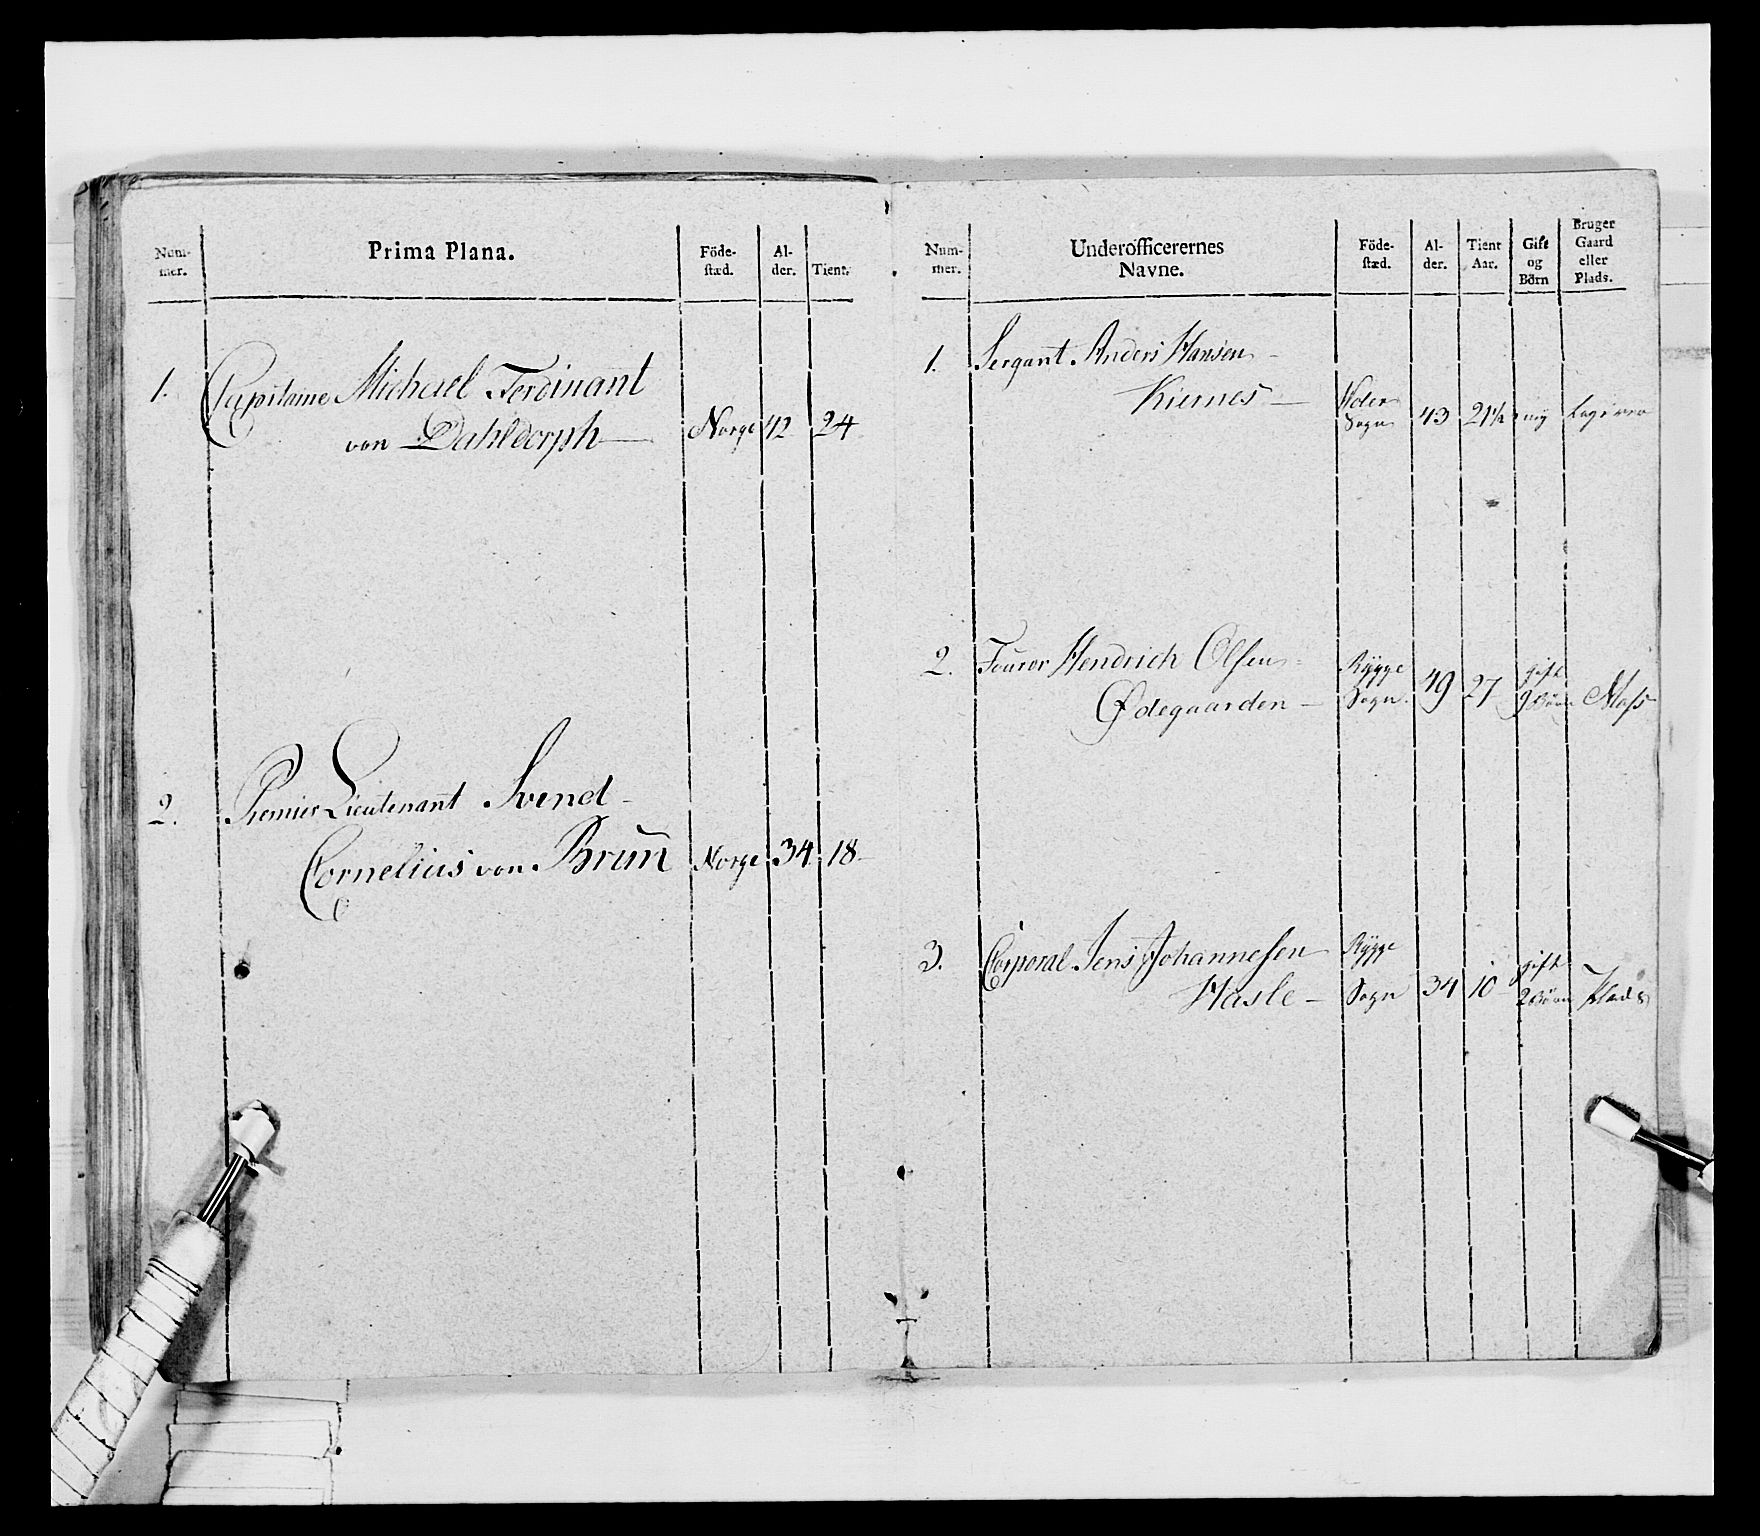 Num-
mer.
Prima Plana.
Föde-
stæd.
Al-
der.
Tient.
1.
Capitaine Michael Ferdinant
von Dahldorph
Norge 42 24
2.
Premier Lieutenant Svend
Cornelius von Brun
Norge 34 18
Num-
mer.
Underofficerernes
Navne.
Föde-
stæd.
Al-
der.
Tient
Aar.
Gift
og
Börn
Bruger
Gaard
eller
Plads.
1.
Sergant Anders Hansen
Kiernes
Sogn 43 21½
2.
Fourer Hendrich Olsen
Ødegaarden
Rygge
Sogn 49 27
gift
9 Börn
Moss
3.
Corporal Jens Johannesen
Hasle
Rygge
Sogn 34 10
gift
2 Börn
Plads